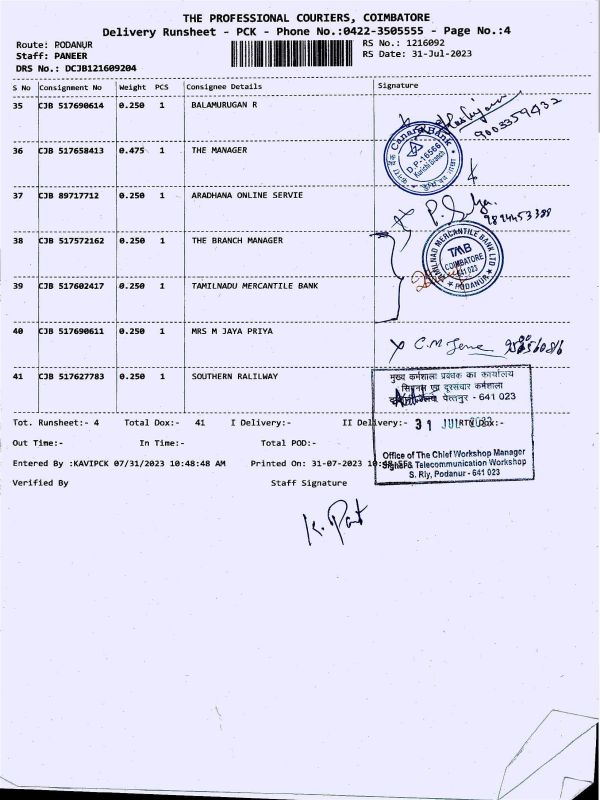 THE PROFESSIONAL COURIERS, COIMBATORE
Delivery Runsheet - PCK - Phone No.:0422-3505555 - Page No.:4
Route: PODANUR
RS No.: 1216092
Staff: PANEER
RS Date: 31-Jul-2023
DRS No.: DCJB121609204
S No Consignment No Weight PCS Consignee Details Signature
35 CJB 517690614 0.250 1 BALAMURUGAN R
9003359432
36 CJB 517658413 0.475 1 THE MANAGER
Canara Bank
D.P-16566
Kurichi Branch
37 CJB 89717712 0.250 1 ARADHANA ONLINE SERVIE
9894453388
38 CJB 517572162 0.250 1 THE BRANCH MANAGER
TAMILNAD MERCANTILE BANK LTD
TMB
COIMBATORE
641 023
PODANUR
39 CJB 517602417 0.250 1 TAMILNADU MERCANTILE BANK
40 CJB 517690611 0.250 1 MRS M JAYA PRIYA
C.M
41 CJB 517627783 0.250 1 SOUTHERN RALILWAY
मुख्य कर्मशाला प्रबंधक का कार्यालय
सिगनल एवं दूरसंचार कर्मशाला
पोत्तनूर - 641 023
Tot. Runsheet:- 4 Total Dox:- 41 I Delivery:- II Delivery:- RTN Dox:-
31 JUL 2023
Out Time:- In Time:- Total POD:-
Office of The Chief Workshop Manager
Entered By :KAVIPCK 07/31/2023 10:48:48 AM Printed On: 31-07-2023
Signal & Telecommunication Workshop
S. Rly, Podanur - 641 023
Verified By Staff Signature